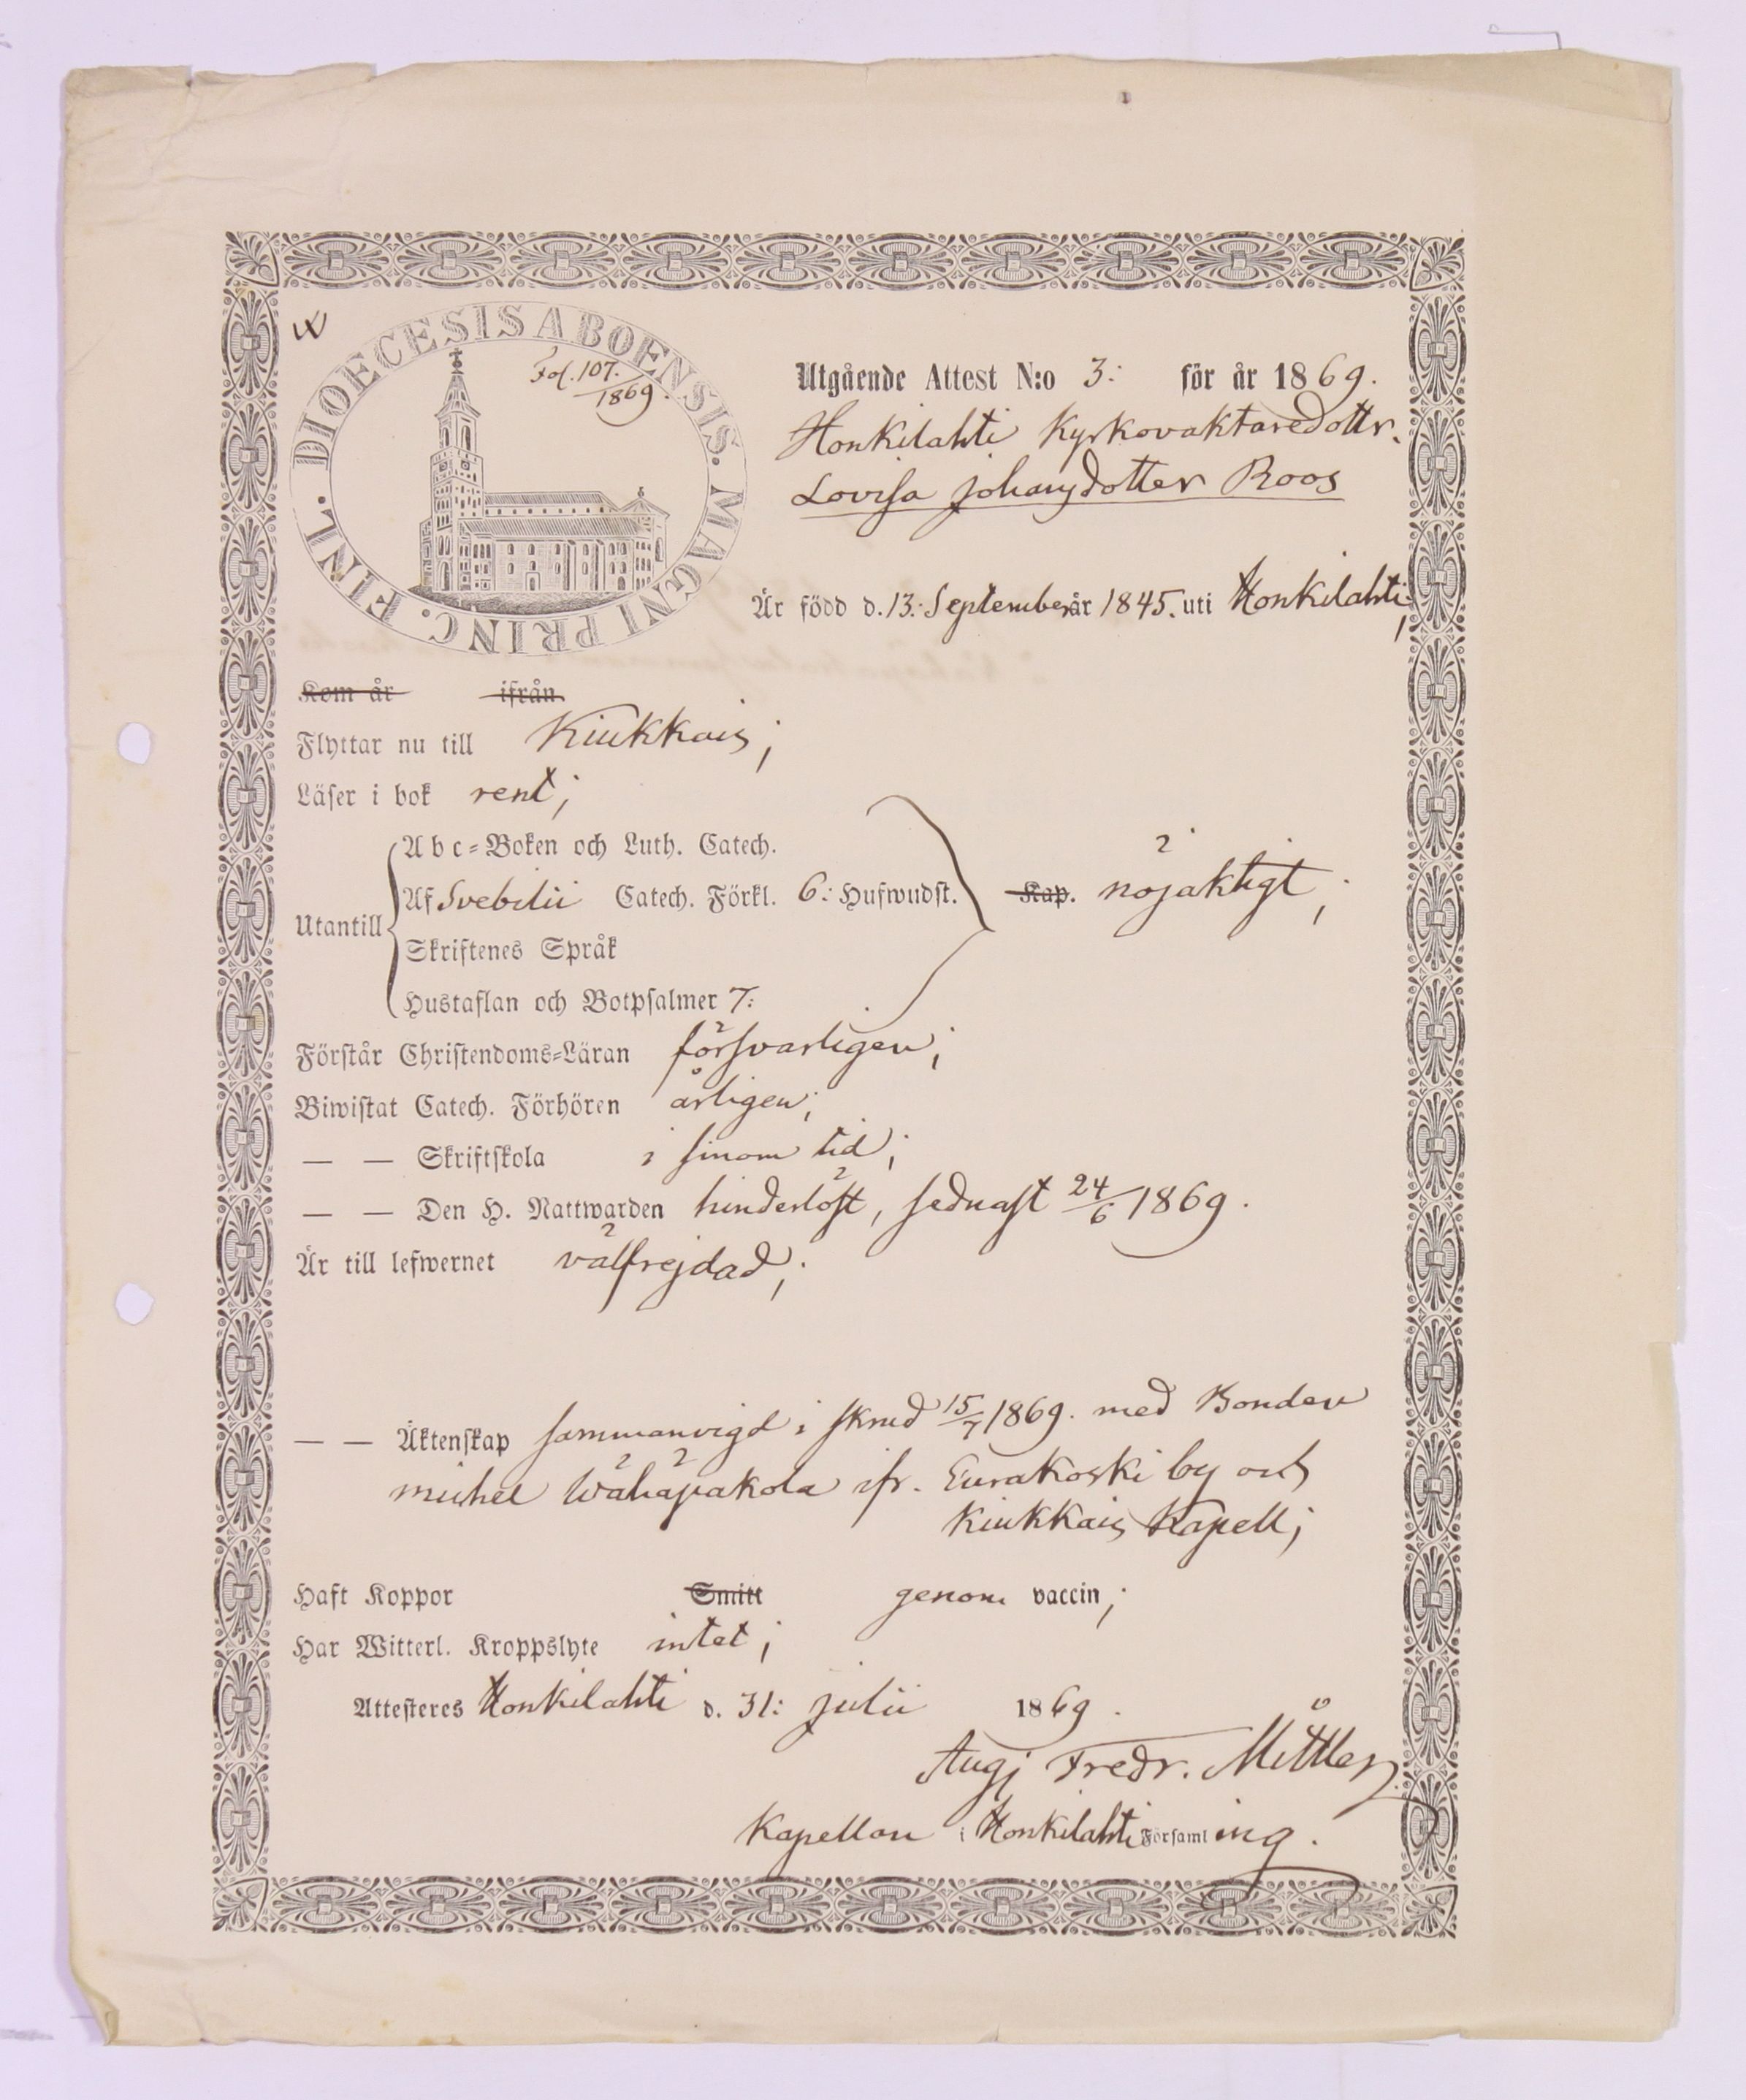 DIOECESIS ABOENSIS. MAGNI PRINC. FINL.
Fol. 107.
1869.
Utgående Attest N:o 3: för år 1869.
Honkilahti Kyrkovaktaredottr.
Lovisa Johansdotter Roos
Är född d. 13: September år 1845. uti Honkilahti;
Kom år ifrån
Flyttar nu till Kiukkais;
Läser i bok rent;
Utantill
Abc-Boken och Luth. Catech.
Af Svebilii Catech. Förkl. 6: Hufwudst.
Kap. nöjaktigt;
Skriftenes Språk
Hustaflan och Botpsalmer 7:
Förstår Christendoms-Läran försvarligen;
Biwistat Catech. Förhören årligen;
— — Skriftskola i sinom tid;
— — Den H. Nattwarden hinderlöst, sednast 24/6 1869.
Är till lefwernet välfrejdad;
— — Äktenskap sammanvigd i skrud 15/7 1869. med Bonden
Michel Wähäpakola ifr. Eurakoski by och
Kiukkais Kapell;
Haft Koppor Smitt genom vaccin;
Har Witterl. Kroppslyte intet;
Attesteres Honkilahti d. 31: Julii 1869.
Aug; Fredr.
Kapellan i Honkilahti Församling.